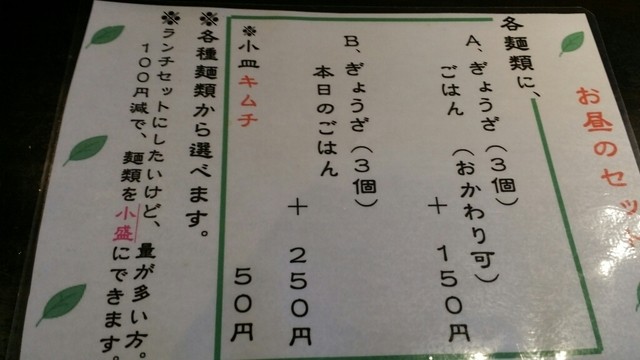 お昼のセット
各麺類に、
A、ぎょうざ（3個）
ごはん（おかわり可）
＋150円
B、ぎょうざ（3個）
本日のごはん
＋250円
※小皿キムチ
50円
※各種麺類から選べます。
※ランチセットにしたいけど、量が多い方。
100円減で、麺類を小盛にできます。